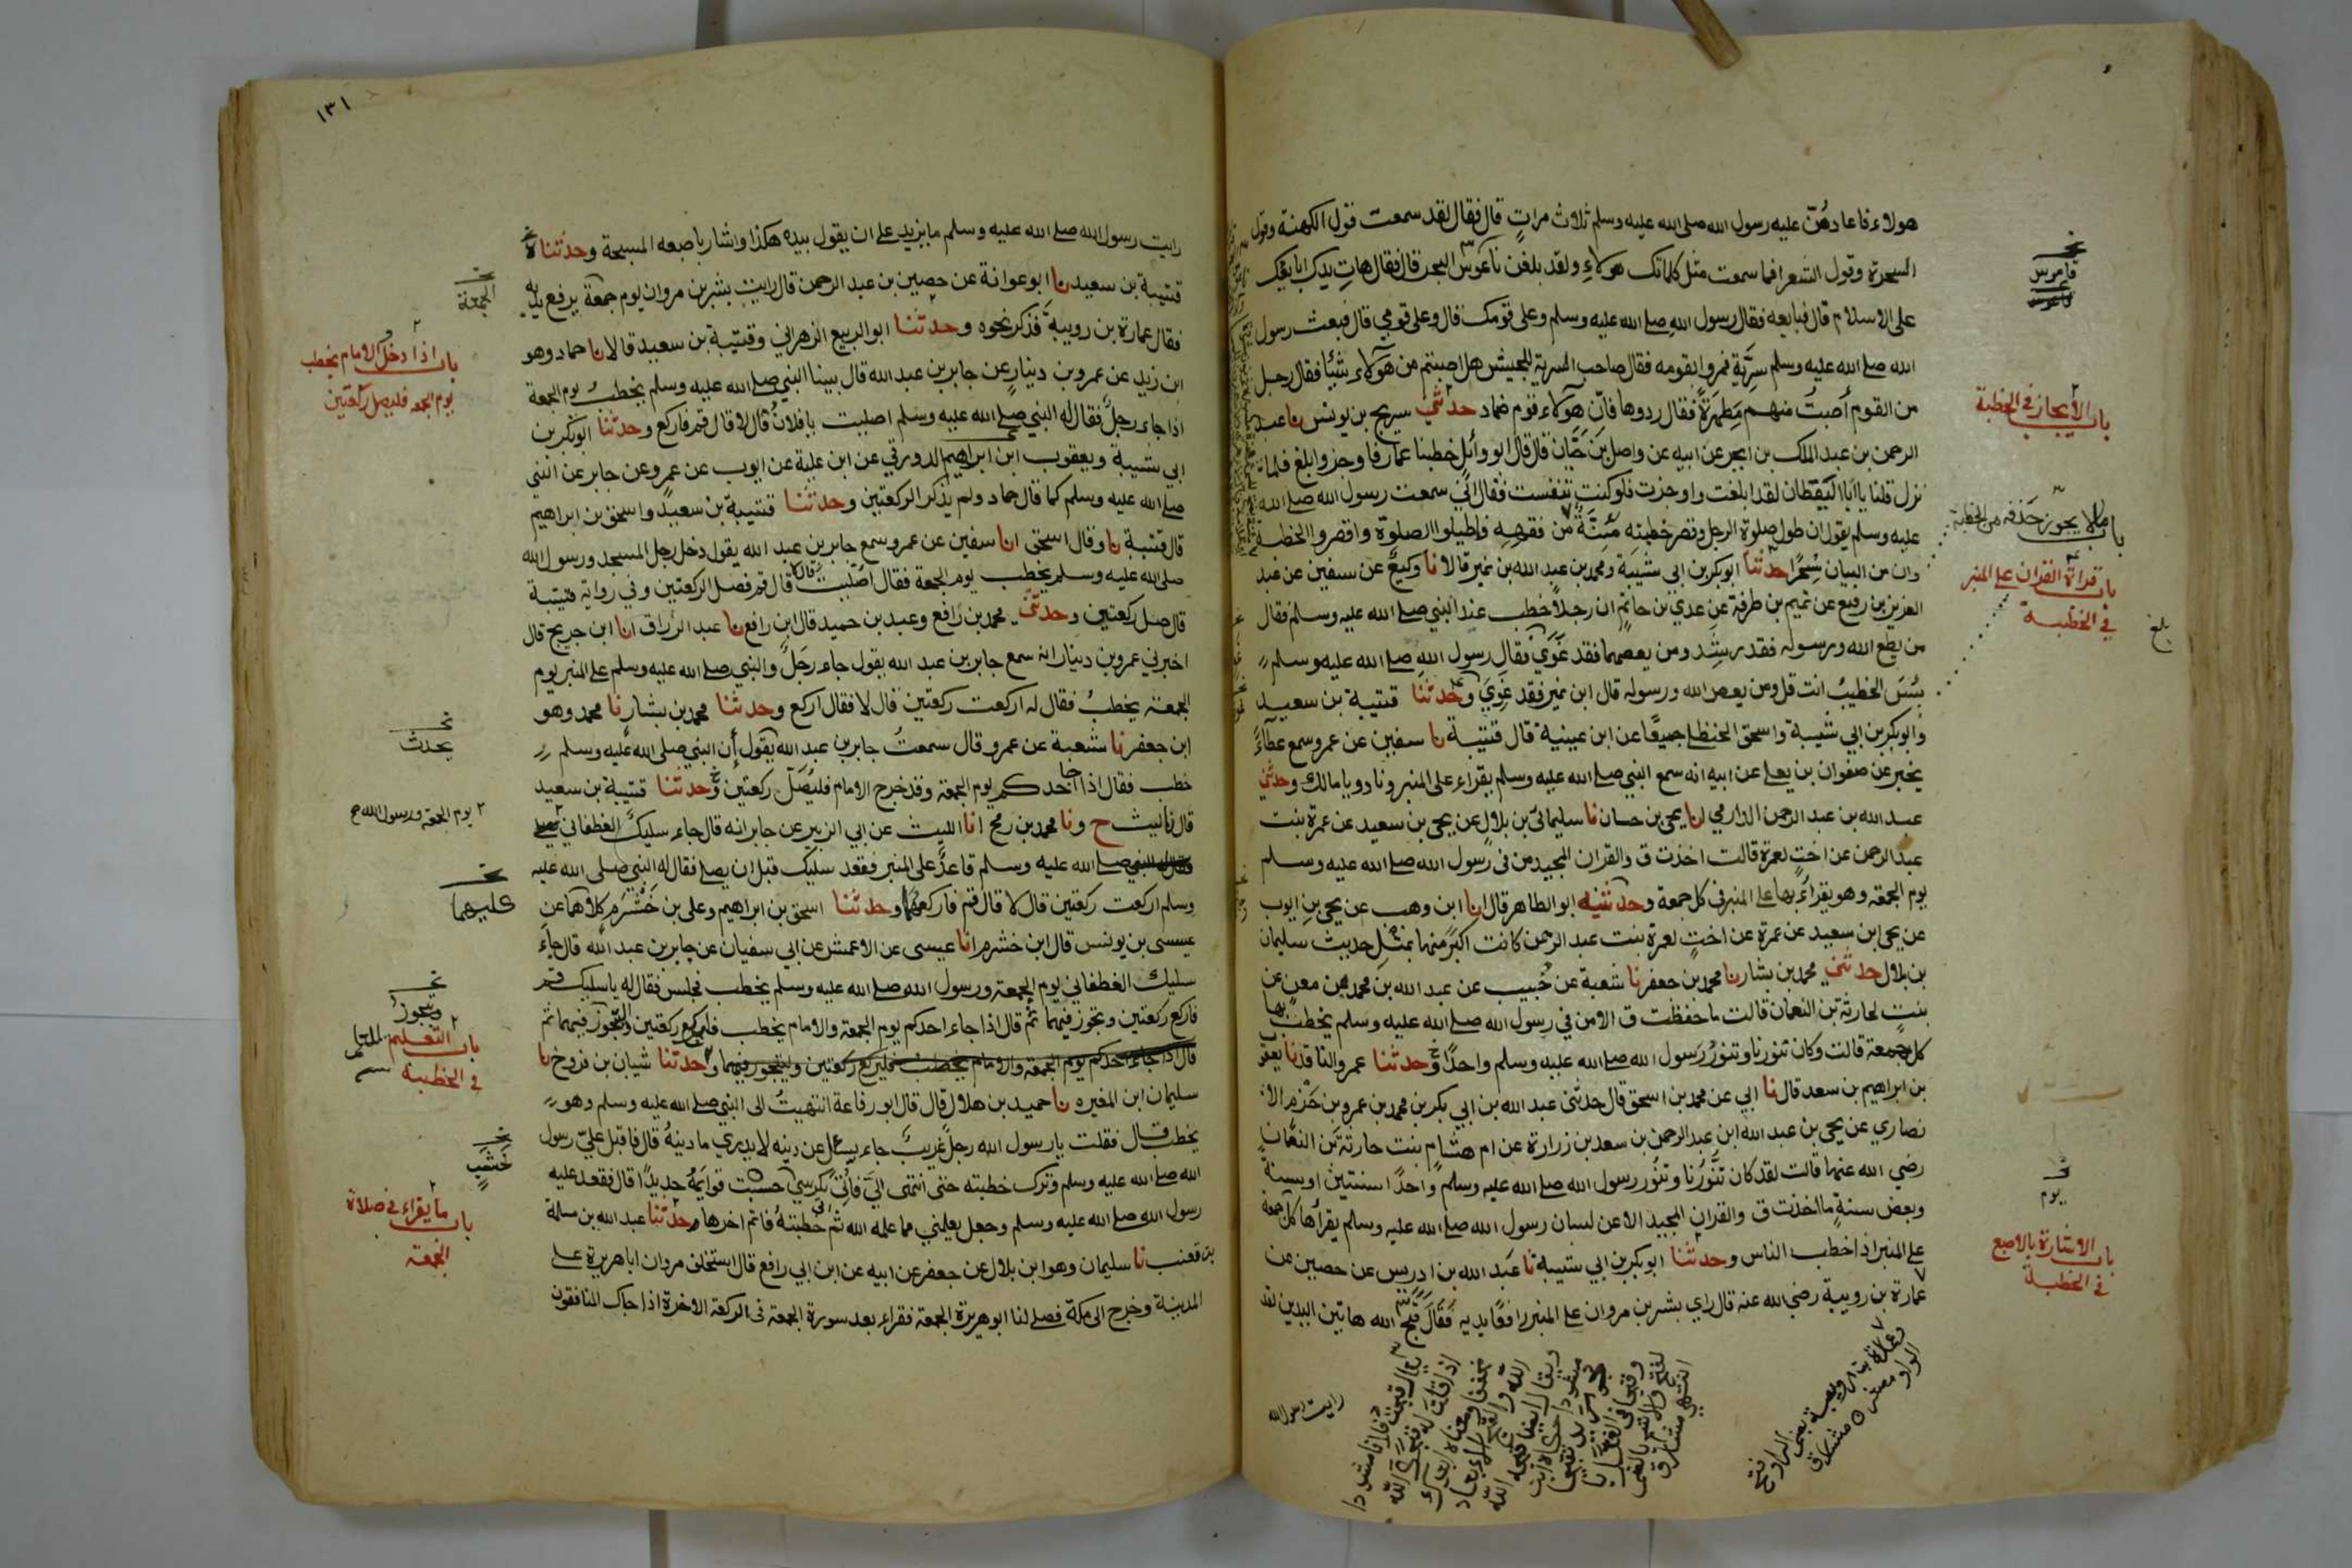 هولاء فاعادهن عليه رسول الله صلى الله عليه وسلم ثلاث مرات قال فقال لقد سمعت قول الكهنة وقول
السحرة وقول الشعرا فما سمعت مثل كلماتك هولاء ولقد بلغن ناعوس البحر قال فقال هات يدك ابايعك
على الاسلام قال فبايعه فقال رسول الله صلى الله عليه وسلم وعلى قومك قال وعلى قومي قال فبعث رسول
الله صلى الله عليه وسلم سرية فمروا بقومه فقال صاحب السرية للجيش هل اصبتم من هولاء شيئا فقال رجل
من القوم أصبت منهم مطهرة فقال ردوها فان هولاء قوم ضماد حدثني سريج بن يونس نا عبد
الرحمن بن عبد الملك بن ابجر عن ابيه عن واصل بن حيان قال قال ابو وائل خطبنا عمار فاوجز وابلغ فلما
نزل قلنا يا ابا اليقظان لقد ابلغت واوجزت فلو كنت تنفست فقال اني سمعت رسول الله صلى الله
عليه وسلم يقول ان طول صلوة الرجل وقصر خطبته مئنة من فقهه فاطيلوا الصلوة واقصروا الخطبة
وان من البيان سحرا حدثنا ابوبكر بن ابي شيبة ومحمد بن عبد الله بن نمير قالا نا وكيع عن سفين عن عبد
العزيز بن رفيع عن تميم بن طرفة عن عدي بن حاتم ان رجلا خطب عند النبي صلى الله عليه وسلم فقال
من يطع الله ورسوله فقد رشد ومن يعصهما فقد غوى فقال رسول الله صلى الله عليه وسلم
بئس الخطيب انت قل ومن يعص الله ورسوله قال ابن نمير فقد غوي وحدثنا قتيبة بن سعيد
وابوبكر بن ابي شيبة واسحق الحنظلي جميعا عن ابن عيينة قال قتيبة نا سفين عن عمرو سمع عطاء
يخبر عن صفوان بن يعلى عن ابيه انه سمع النبي صلى الله عليه وسلم يقراء على المنبر ونادوا يا مالك وحدثني
عبد الله بن عبد الرحمن الدارمي انا يحيى بن حسان نا سليمان بن بلال عن يحيى بن سعيد عن عمرة بنت
عبد الرحمن عن اخت لعمرة قالت اخذت ق والقران المجيد من في رسول الله صلى الله عليه وسلم
يوم الجمعة وهو يقراء بها على المنبر في كل جمعة وحدثنيه ابو الطاهر قال انا ابن وهب عن يحيى بن ايوب
عن يحيى ابن سعيد عن عمرة عن اخت لعمرة بنت عبد الرحمن كانت اكبر منها بمثل حديث سليمان
بن بلال حدثني محمد بن بشار نا محمد بن جعفر نا شعبة عن خبيب عن عبد الله بن محمد بن معن عن
بنت لحارثة بن النعمان قالت ما حفظت ق الا من في رسول الله صلى الله عليه وسلم يخطب بها
كل جمعة قالت وكان تنورنا وتنور رسول الله صلى الله عليه وسلم واحدا وحدثنا عمرو الناقد نا يعقوب
بن ابراهيم بن سعد قال نا ابي عن محمد بن اسحق قال حدثني عبد الله بن ابي بكر بن محمد بن عمرو بن حزم الا
نصاري عن يحيى بن عبد الله ابن عبد الرحمن بن سعد بن زرارة عن ام هشام بنت حارثة بن النعمان
رضي الله عنهما قالت لقد كان تنورنا وتنور رسول الله صلى الله عليه وسلم واحدا سنتين او سنة
وبعض سنة ما اخذت ق والقران المجيد الا عن لسان رسول الله صلى الله عليه وسلم يقرأها كل جمعة
على المنبر اذا خطب الناس وحدثنا ابوبكر بن ابي شيبة نا عبد الله بن ادريس عن حصين عن
عمارة بن رويبة رضي الله عنه قال راي بشر بن مروان على المنبر رافعا يديه فقال قبح الله هاتين اليدين لقد
رايت رسول الله
قاموس
باب الأيجاز في الخطبة
باب ما لا يجوز حذفه من الخطبة
باب قراة القران على المنبر
في الخطبة
بلغ
يوم
باب الاشارة بالاصبع
في الخطبة
١٣١
رايت رسول الله صلى الله عليه وسلم ما يزيد على ان يقول بيده هكذا واشار باصبعه المسبحة وحدثناه
قتيبة بن سعيد نا ابو عوانة عن حصين بن عبد الرحمن قال رايت بشر بن مروان يوم جمعة يرفع يديه
فقال عمارة بن رويبة فذكر نحوه وحدثنا ابو الربيع الزهراني وقتيبة بن سعيد قالا نا حماد وهو
ابن زيد عن عمرو بن دينار عن جابر بن عبد الله قال بينا النبي صلى الله عليه وسلم يخطب يوم الجمعة
اذا جاء رجل فقال له النبي صلى الله عليه وسلم اصليت يا فلان قال لا قال قم فاركع وحدثنا ابوبكر بن
ابي شيبة ويعقوب ابن ابراهيم الدورقي عن ابن علية عن ايوب عن عمرو عن جابر عن النبي
صلى الله عليه وسلم كما قال حماد ولم يذكر الركعتين وحدثنا قتيبة بن سعيد واسحق بن ابراهيم
قال قتيبة نا وقال اسحق انا سفين عن عمرو سمع جابر بن عبد الله يقول دخل رجل المسجد ورسول الله
صلى الله عليه وسلم يخطب يوم الجمعة فقال اصليت قال لا قال قم فصل الركعتين وفي رواية قتيبة
قال صل ركعتين وحدثني محمد بن رافع وعبد بن حميد قال ابن رافع نا عبد الرزاق انا ابن جريج قال
اخبرني عمرو بن دينار انه سمع جابر بن عبد الله يقول جاء رجل والنبي صلى الله عليه وسلم على المنبر يوم
الجمعة يخطب فقال له اركعت ركعتين قال لا فقال اركع وحدثنا محمد بن بشار نا محمد وهو
ابن جعفر نا شعبة عن عمرو قال سمعت جابر بن عبد الله يقول أن النبي صلى الله عليه وسلم
خطب فقال اذا جا احدكم يوم الجمعة وقد خرج الامام فليصل ركعتين وحدثنا قتيبة بن سعيد
قال نا ليث ح ونا محمد بن رمح انا الليث عن ابي الزبير عن جابر انه قال جاء سليك الغطفاني
صلى الله عليه وسلم قاعد على المنبر فقعد سليك قبل ان يصلي فقال له النبي صلى الله عليه
وسلم اركعت ركعتين قال لا قال قم فاركعهما وحدثنا اسحق بن ابراهيم وعلي بن خشرم كلاهما عن
عيسى بن يونس قال ابن خشرم انا عيسى عن الاعمش عن ابي سفيان عن جابر بن عبد الله قال جاء
سليك الغطفاني يوم الجمعة ورسول الله صلى الله عليه وسلم يخطب فجلس فقال له يا سليك قم
فاركع ركعتين وتجوز فيهما ثم قال اذا جاء احدكم يوم الجمعة والامام يخطب فليركع ركعتين وليتجوز فيهما ثم
قال اذا جاء احدكم يوم الجمعة والامام يخطب فليركع ركعتين وليتجوز فيهما وحدثنا شيبان بن فروخ نا
سليمان ابن المغيره نا حميد بن هلال قال قال ابو رفاعة انتهيت الى النبي صلى الله عليه وسلم وهو
يخطب قال فقلت يا رسول الله رجل غريب جاء يسال عن دينه لا يدري ما دينه قال فاقبل علي رسول
الله صلى الله عليه وسلم وترك خطبته حتى انتهى الي فاتي بكرسي حسبت قوايمه حديدا قال فقعد عليه
رسول الله صلى الله عليه وسلم وجعل يعلمني مما علمه الله ثم اتى خطبته فاتم اخرها وحدثنا عبد الله بن مسلمة
بن قعنب نا سليمان وهو ابن بلال عن جعفر عن ابيه عن ابن ابي رافع قال استخلف مروان اباهريرة على
المدينة وخرج الى مكة فصلى لنا ابو هريرة الجمعة فقراء بعد سورة الجمعة في الركعة الاخرة اذا جاك المنافقون
الجمعة
باب اذا دخل والامام يخطب
يوم الجمعه فليصل ركعتين
يحدث
يوم الجمعة ورسول الله ص
عليهما
ويتجوز
باب التعليم
في الخطبة
خشب
باب ما يقراء في صلاة
الجمعة